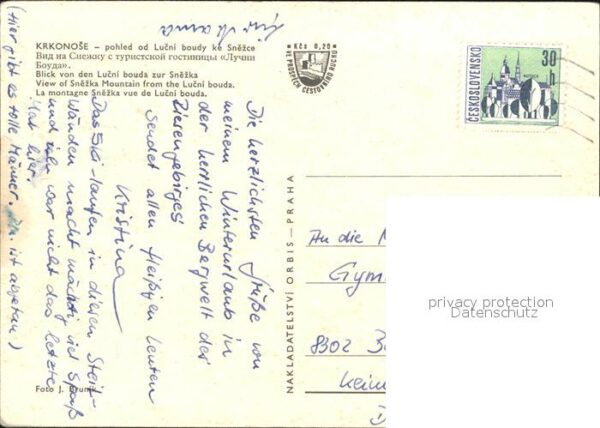 KRKONOŠE – pohled od Luční boudy ke Sněžce
Вид на Снежку с туристской гостиницы «Лучни
Боуда».
Blick von den Luční bouda zur Sněžka
View of Sněžka Mountain from the Luční bouda.
La montagne Sněžka vue de Luční bouda.
Kčs 0,20
VE PROSPĚCH CESTOVNÍHO RUCHU
ČESKOSLOVENSKO
30
h
Die herzlichsten Grüße von
meinem Winterurlaub in
der herrlichen Bergwelt des
Riesengebirges
sendet allen fleißigen Leuten
Kristina
Das Ski-laufen in diesen Steil-
wänden macht mächtig viel Spaß
und war nicht das letzte
Mal hier.
(Hier gibt es tolle Männer. ist abgetan)
NAKLADATELSTVÍ ORBIS – PRAHA
An die
Gym
8302
privacy protection
Datenschutz
Foto J. Bruník